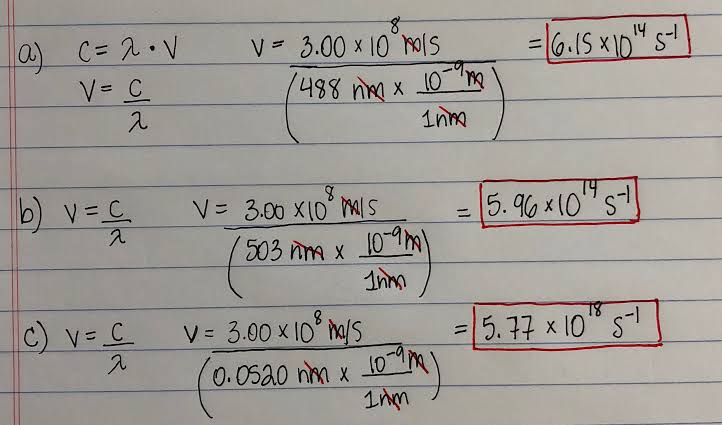 a) C = λ · ν   ν = 3.00 × 10⁸ m/s / (488 nm × 10⁻⁹ m / 1nm) = 6.15 × 10¹⁴ s⁻¹
ν = C / λ
b) ν = C / λ   ν = 3.00 × 10⁸ m/s / (503 nm × 10⁻⁹ m / 1nm) = 5.96 × 10¹⁴ s⁻¹
c) ν = C / λ   ν = 3.00 × 10⁸ m/s / (0.0520 nm × 10⁻⁹ m / 1nm) = 5.77 × 10¹⁸ s⁻¹